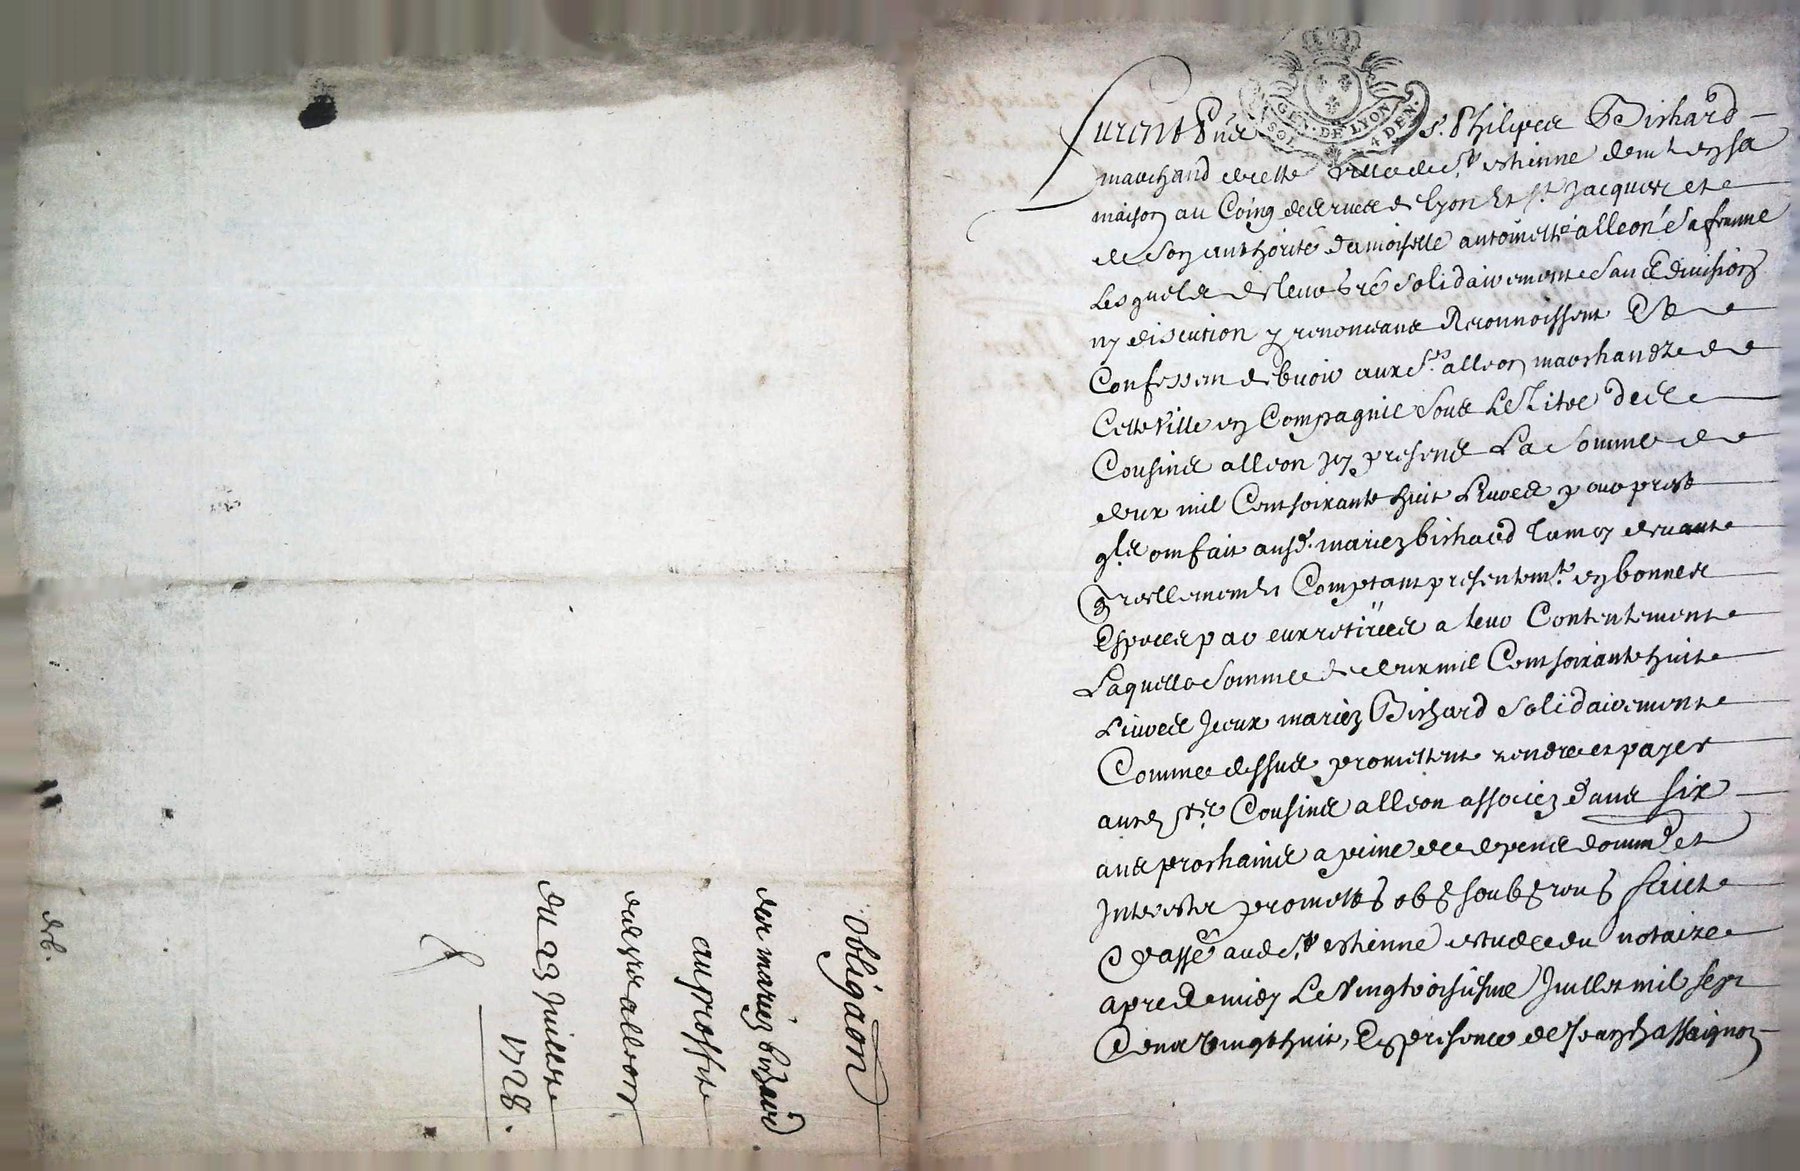 GEN · DE LYON
SOL 4 DEN.
Furent pnts Sr. Philipes Bichard
marchand de cette ville de St. estienne demt en sa
maison au Coing des rues de lyon et St Jacques et
de son authorité damoiselle antoinette alleon sa femme
Lesquels de leur gré solidairement sans division
ny discution y renonceans Reconnoissent Et
Confessent debvoir aux Srs. alleon marchandz de
Cette ville en Compagnie sous Le Titre des
Cousins alleon presens La somme de
deux mil Cent soixante huit Livres pour prest
qls ont fait ausd. mariez bichard devant
reellement Comptant presentemt. en bonnes
Especes par eux retirées a leur Contentement
Laquelle somme de deux mil Cent soixante huit
Livres Iceux mariez Bichard solidairement
Comme dessus promettent rendre et payer
auxd. Srs. Cousins alleon associez dans six
ans prochains a peine de depens domm et
Interestz promettes obe soub renos fait
Et passé aud St. estienne estude du notaire
apres midy Le vingt troisiesme Juillet mil sept
Cens vingt huit, En presence de Jean Chassaignon
Obligaon
des mariez bichard
au proffit
des srs alleon
du 23 Juillet
1728.